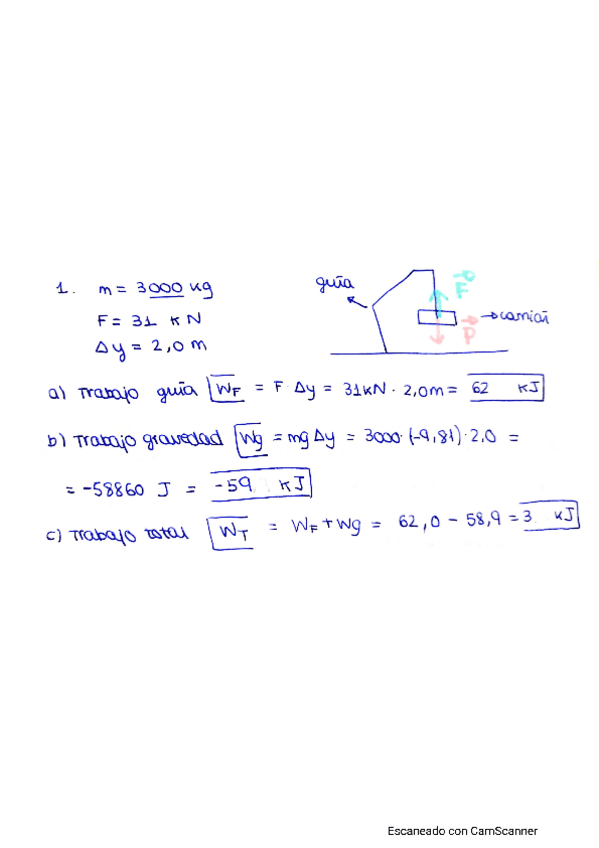 1. m = 3000 kg
F = 31 kN
Δy = 2,0 m
guía
F
→camión
P
a) Trabajo guía WF = F · Δy = 31kN · 2,0m = 62 kJ
b) Trabajo gravedad Wg = mgΔy = 3000·(-9,81)·2,0 =
= -58860 J = -59 kJ
c) Trabajo total WT = WF + Wg = 62,0 - 58,9 = 3 kJ
Escaneado con CamScanner